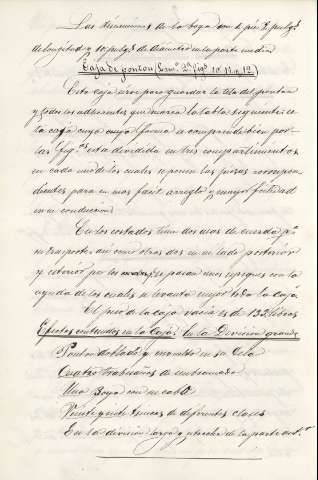 Las dimensiones de la boya son 1 pie 2 pulgs
de longitud y 10 pulgs de diametro en la parte media
Caja de ponton (Lam.ª 2.ª figs 10 11 y 12)
Esta caja sirve para guardar la tela del ponton
y todos los adherentes que marca la tabla siguiente: es
ta caja cuya forma se comprende bien por
las figs está dividida en tres compartimentos
en cada uno de los cuales se ponen las piezas correspon
dientes para su mas facil arreglo y mayor facilidad
en su conduccion.
En los costados tiene dos asas de cuerda p.ª
su trasporte asi como otras dos en su lado posterior
y exterior por las cuales se pasan unos espeques con la
ayuda de los cuales se levanta mejor toda la caja.
El peso de la caja vacia es de 132 libras
Efectos contenidos en la Caja. En la Division grande
Ponton doblado y envuelto en su tela
Cuatro travesaños de embreado
Una boya con su cabo
Veinte y seis de diferentes clases
En la division larga y estrecha de la parte ant.or